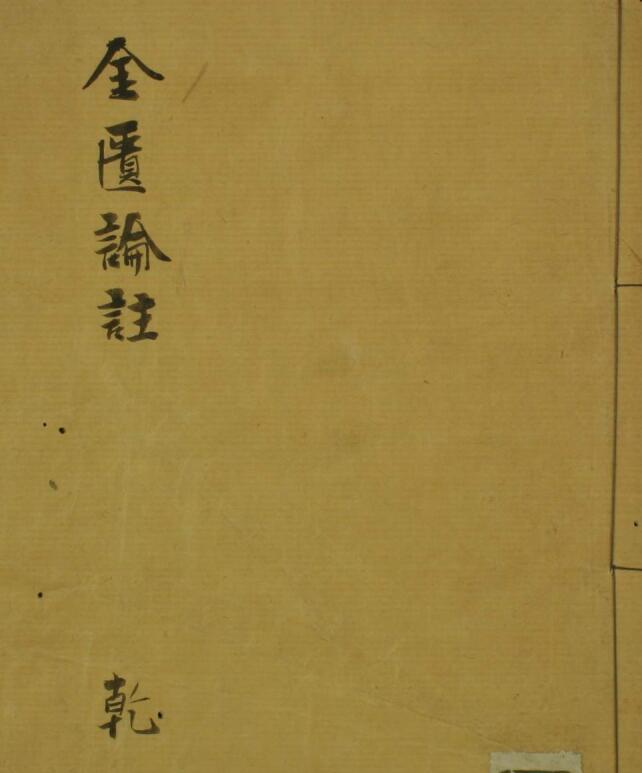 金匱論註
乾